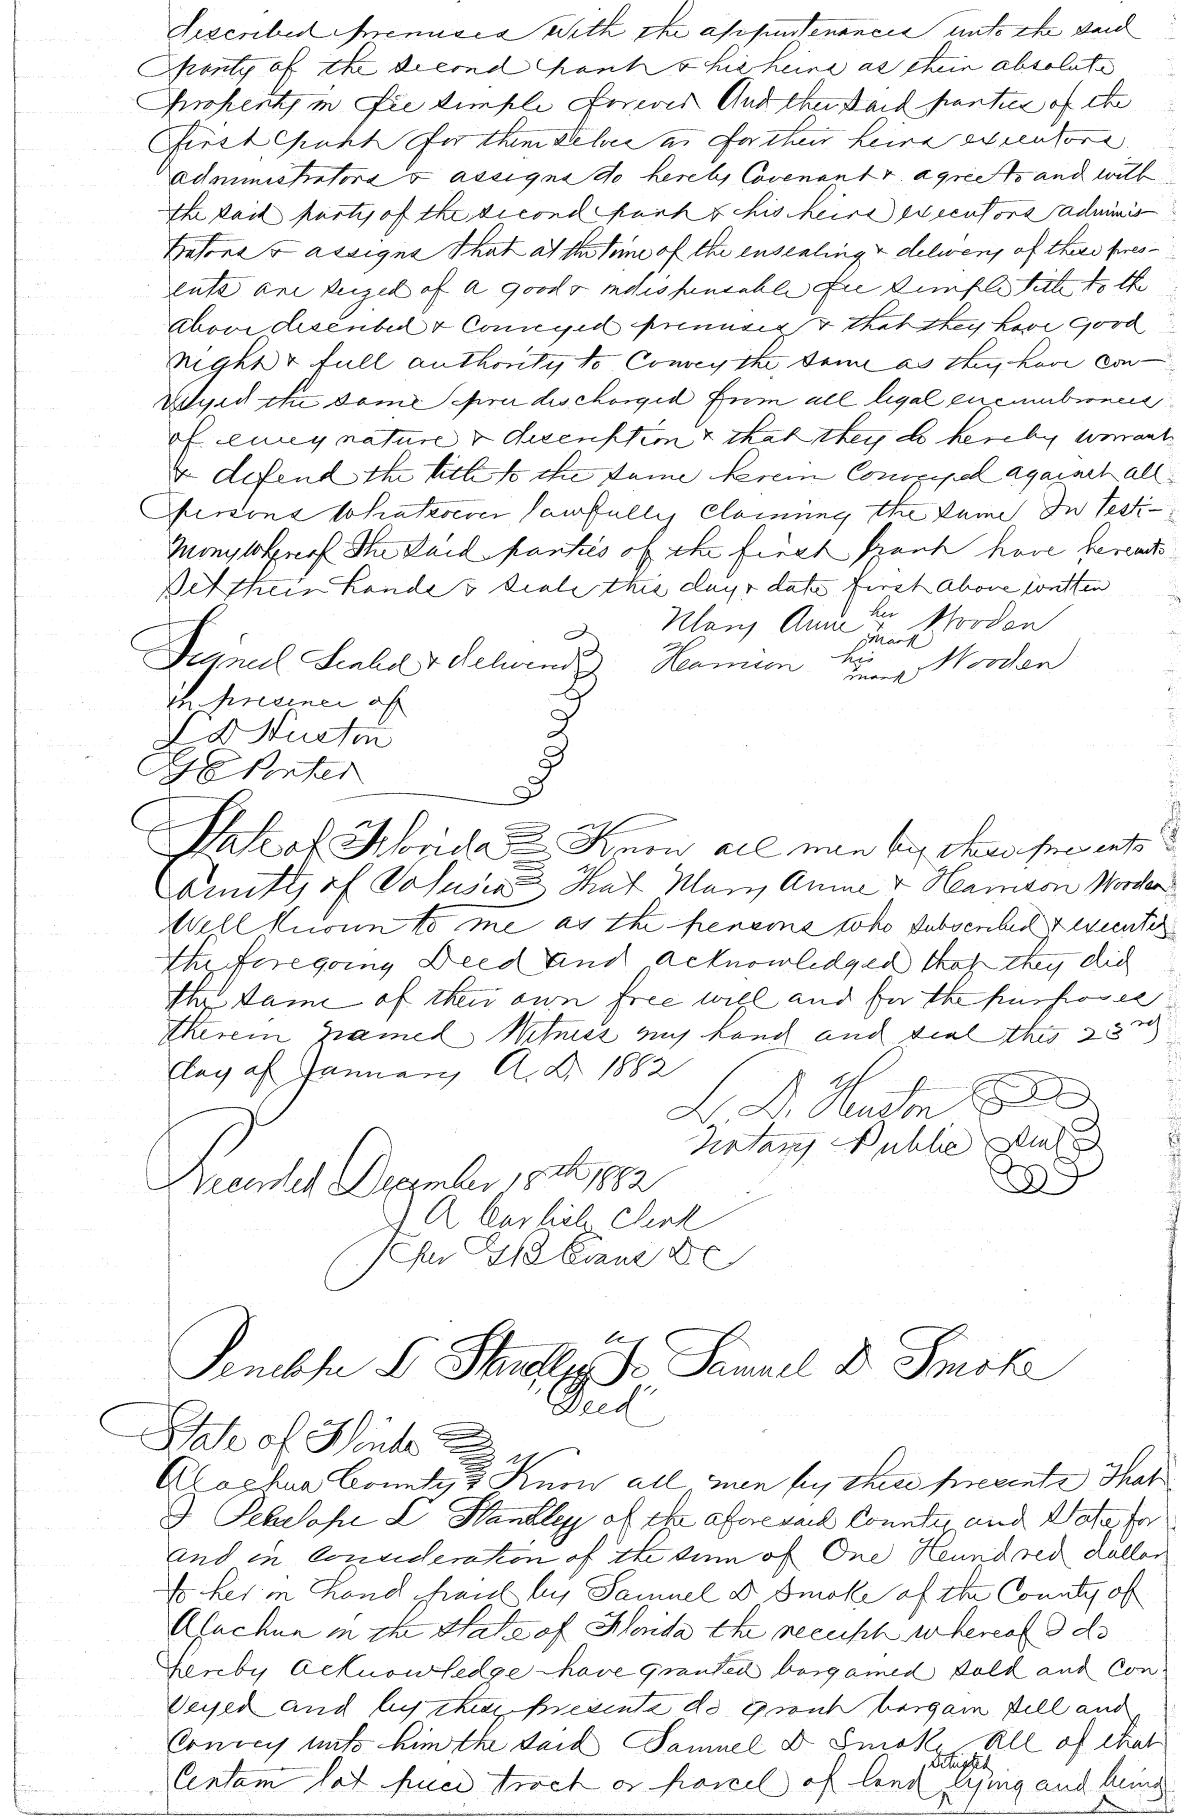 described premises with the appurtenances unto the said
party of the second part & his heirs as their absolute
property in fee simple forever And the said parties of the
first part for themselves as for their heirs executors
administrators & assigns do hereby Covenant & agree to and with
the said party of the second part & his heirs executors adminis-
trators & assigns that at the time of the ensealing & delivery of these pres-
ents are seized of a good & indispensable fee simple title to the
above described & Conveyed premises & that they have good
right & full authority to Convey the same as they have con-
veyed the same free discharged from all legal encumbrances
of every nature & description & that they do hereby warrant
& defend the title to the same herein Conveyed against all
persons whatsoever lawfully claiming the same In Testi-
mony Whereof The Said parties of the first part have hereunto
Set their hands & seals this day & date first above written
Mary Anne her mark Wooden
Signed Sealed & delivered Harrison his mark Wooden
in presence of
L D Huston
G E Porter
State of Florida Know all men by these presents
County of Volusia That Mary Anne & Harrison Wooden
Well known to me as the persons who subscribed & executed
the foregoing Deed and acknowledged that they did
the same of their own free will and for the purposes
therein named Witness my hand and seal this 23rd
day of January A.D. 1882
L. D. Huston
Notary Public Seal
Recorded December 18th 1882
J A Carlisle Clerk
per G B Evans D C
Penelope L Standley to Samuel D Smoke
"Deed"
State of Florida
Alachua County Know all men by these presents That
I Penelope L Standley of the aforesaid County and State for
and in consideration of the sum of One Heundred dollars
to her in hand paid by Samuel D Smoke of the County of
Alachua in the State of Florida the receipt whereof I do
hereby acknowledge have granted bargained sold and con-
veyed and by these presents do grant bargain sell and
Convey unto him the said Samuel D Smoke All of that
Certain lot piece tract or parcel of land situated lying and being